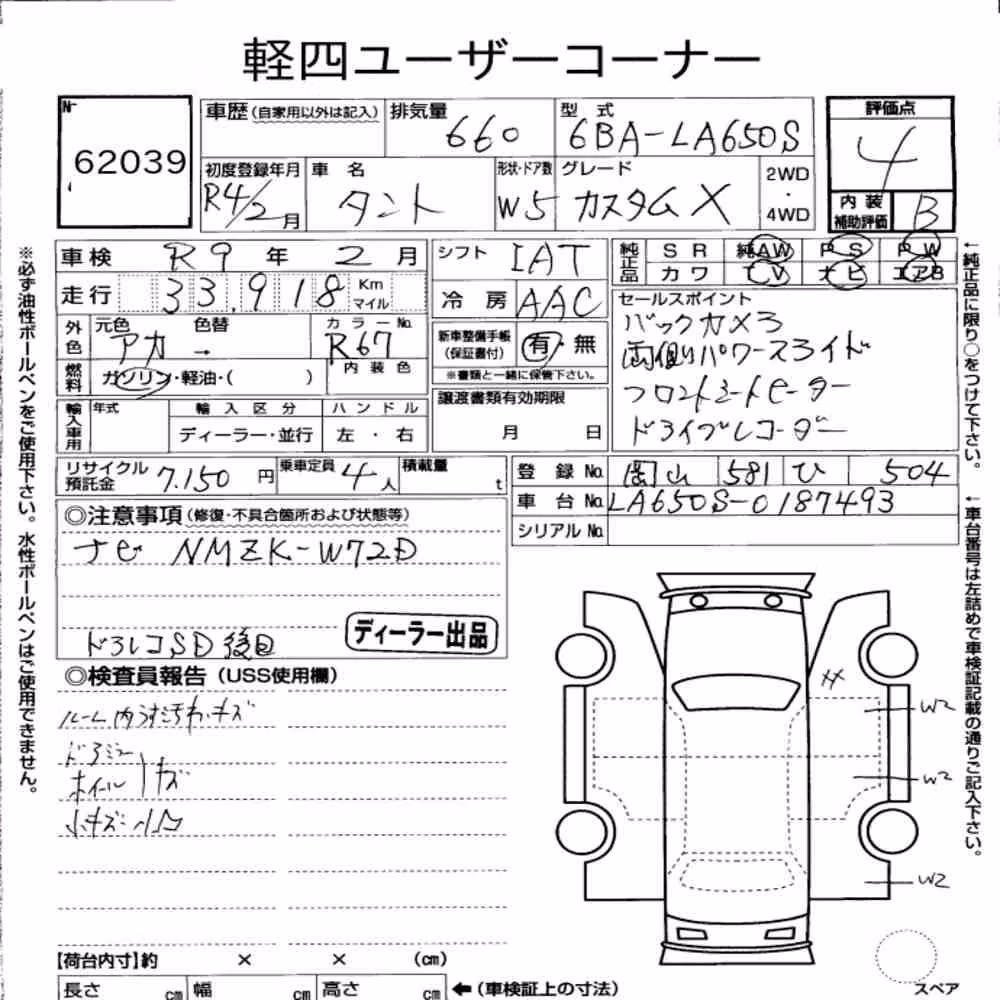 軽四ユーザーコーナー
№ 62039
車歴(自家用以外は記入) 排気量 660 型式 6BA-LA650S
評価点 4
初度登録年月 R4/2月 車名 タント 形状・ドア数 W5 グレード カスタムX 2WD・4WD
内装補助評価 B
車検 R9年2月 シフト IAT 純正品 SR 純AW PS PW
カワ TV ナビ エアB
走行 33,918 Km マイル 冷房 AAC
セールスポイント
バックカメラ
両側パワースライド
フロントシートヒーター
ドライブレコーダー
外色 元色 アカ 色替 → カラーNo. R67
内装色
新車整備手帳(保証書付) 有・無
※書類と一緒に保管下さい。
燃料 ガソリン・軽油・( )
譲渡書類有効期限 月 日
輸入車用 年式 輸入区分 ハンドル
ディーラー・並行 左・右
リサイクル預託金 7.150円 乗車定員 4人 積載量 t
登録No. 岡山 581 ひ 504
車台No. LA650S-0187493
シリアルNo.
◎注意事項(修復・不具合箇所および状態等)
ナビ NMZK-W72D
ドラレコSD後日
ディーラー出品
◎検査員報告(USS使用欄)
ルーム内うす汚れ、キズ
ドアミラー
ホイール キズ
小キズ・凹
W2
W2
W2
スペア
【荷台内寸】約 × × (cm)
長さ cm 幅 cm 高さ cm ←(車検証上の寸法)
※必ず油性ボールペンをご使用下さい。水性ボールペンはご使用できません。
←純正品に限り○をつけて下さい。
←車台番号は左詰めで車検証記載の通りご記入下さい。